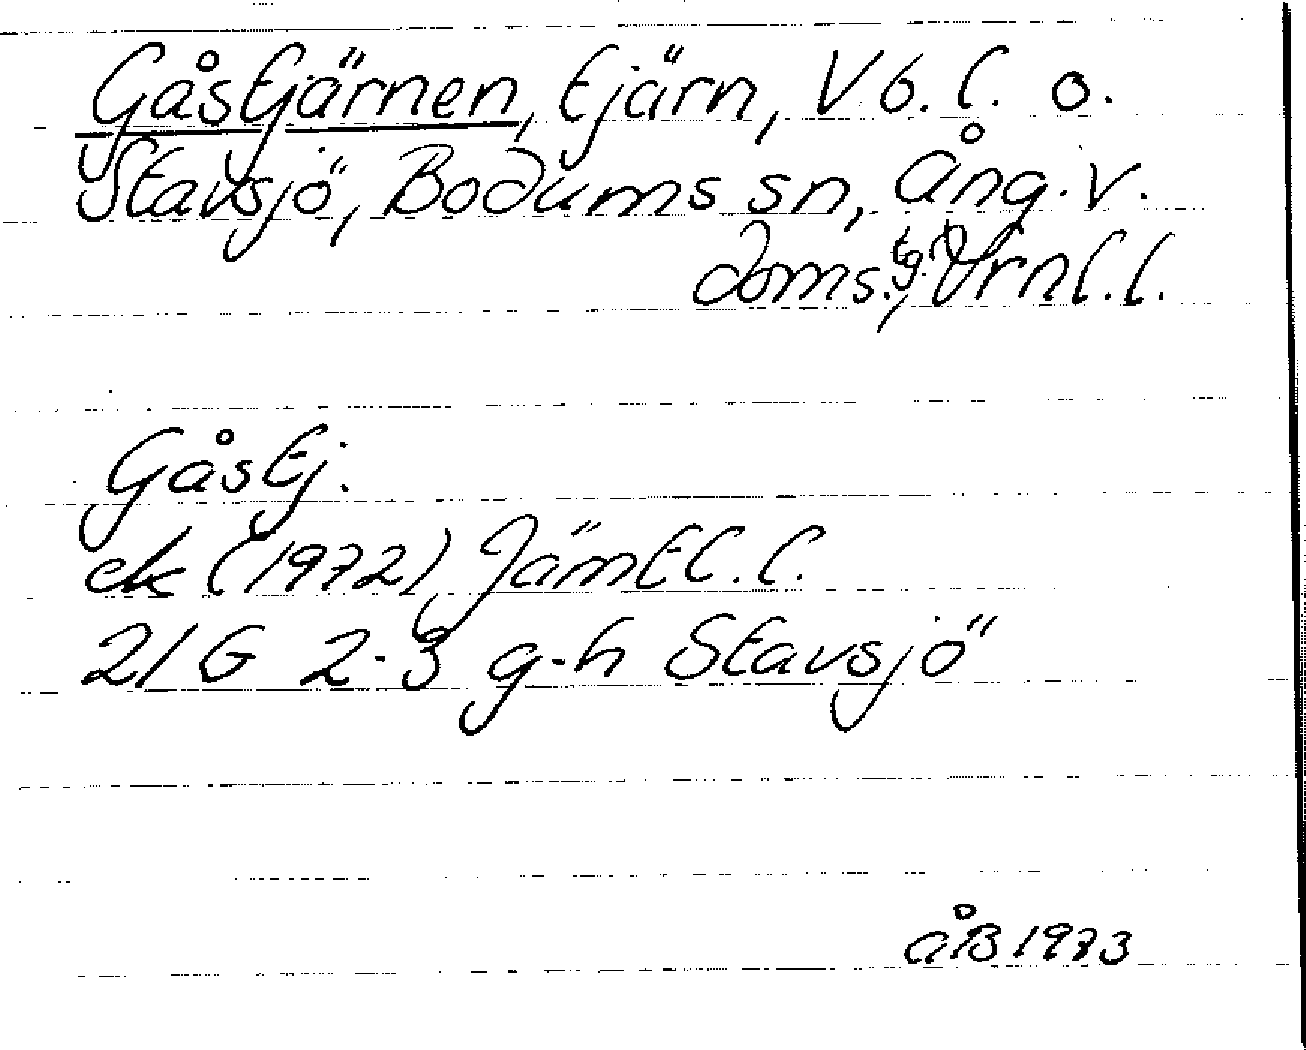 Gåstjärnen, tjärn, V 6. l. o.
Stavsjö, Bodums sn, Ång. v.
doms.g., Vrnl. l.
Gåstj.
ek (1972) Jämtl. l.
21 G 2-3 g-h Stavsjö
ÅB 1973